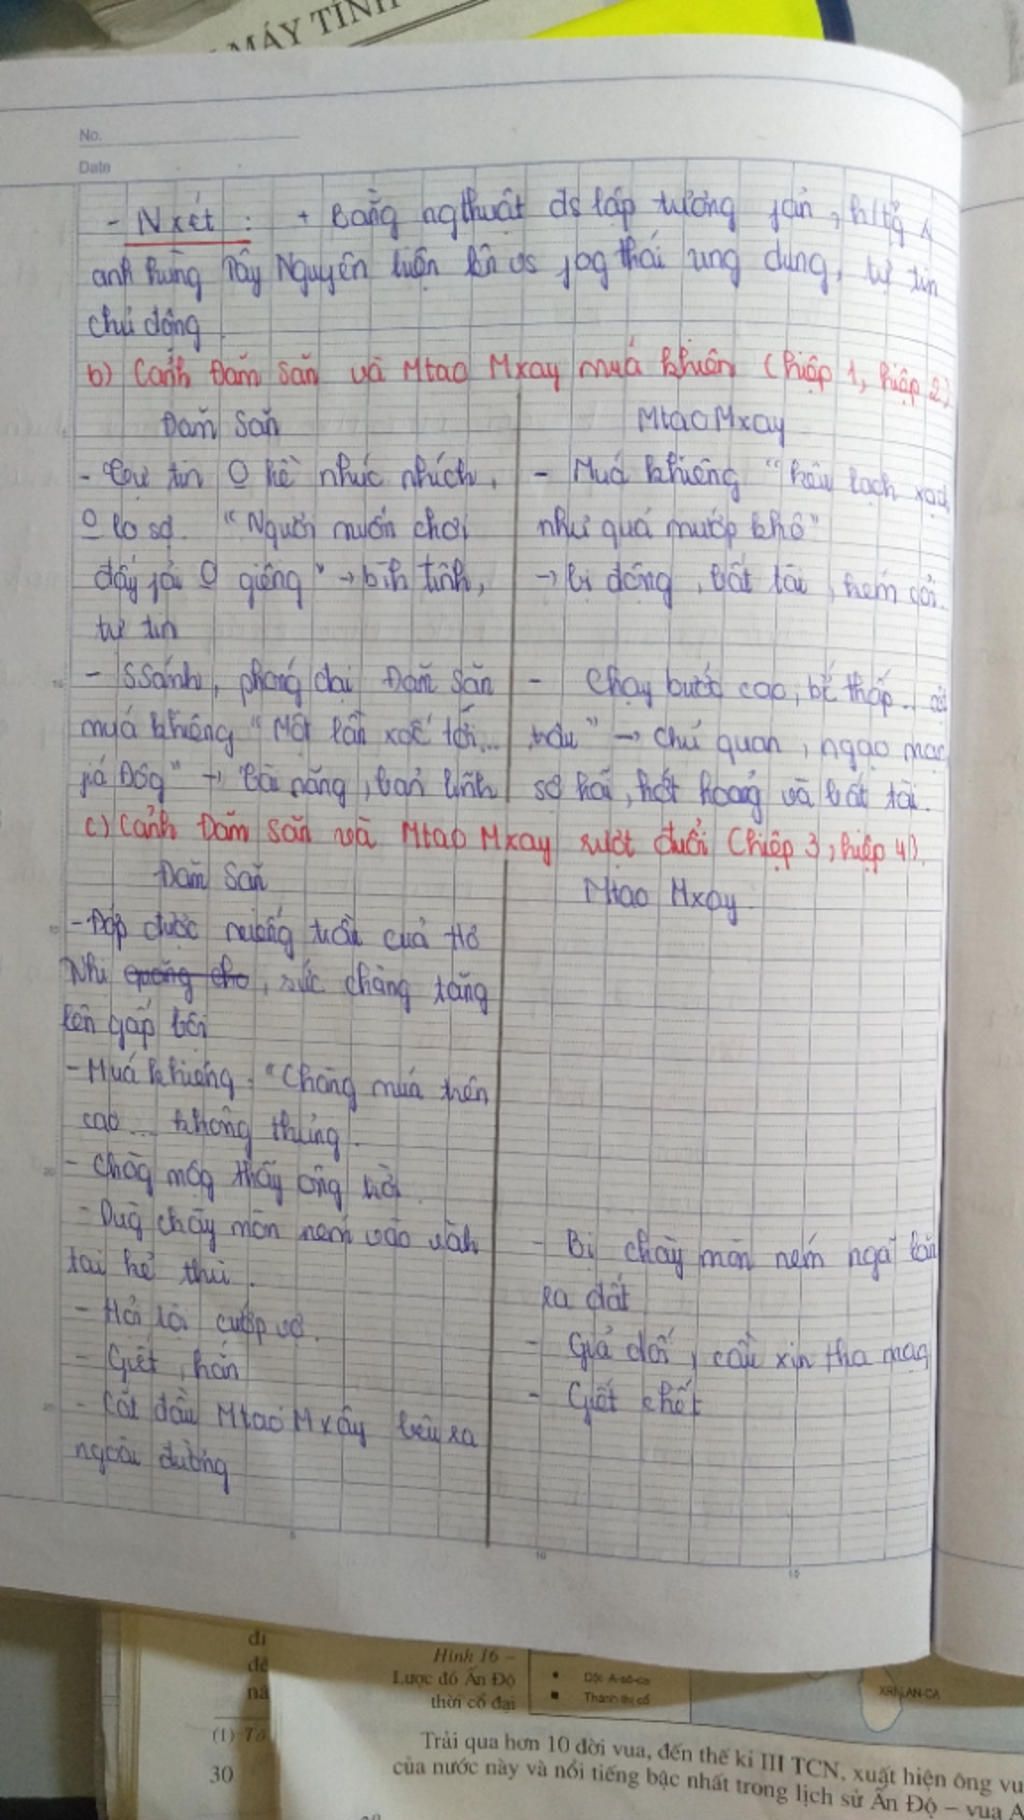 MÁY TÍNH
No.
Date
- Nxét : + Bằng ngthuật ds lập tương fản, htg
anh hùng Tây Nguyên luôn lên vs jog thái ung dung, tự tin
chủ động
b) Cảnh Đăm Săn và Mtao Mxay múa khiên (hiệp 1, hiệp 2)
Đăm Săn
MtaoMxay
- Tự tin O hề nhúc nhích,
O lo sợ. "Người muốn chơi
đấy fải O giống" → bình tĩnh,
tự tin
- Muá khiêng "kêu lạch xạch
như quả mướp khô"
→ bị động, bất tài, kém cỏi.
- SSánh, phóng đại Đăm Săn
muá khiêng "Một lần xốc tới...
já Đôg" → tài năng, bản lĩnh
- Chạy bước cao, bc thấp..
trâu" → chủ quan, ngạo mạn
sợ hãi, hốt hoảng và bất tài.
c) Cảnh Đăm Săn và Mtao Mxay rượt đuổi (hiệp 3, hiệp 4).
Đăm Săn
Mtao Mxay
- Đớp được miếng trầu của Hơ
Nhị quăng cho, sức chàng tăng
lên gấp bội
- Muá khiêng: "Chàng múa trên
cao... không thủng.
- Chàg môg thấy ông trời.
- Dùg chày mòn ném vào vành
tai kẻ thù.
- Hỏi tội cướp vợ.
- Giết hắn
- Cắt đầu Mtao Mxây bêu ra
ngoài đường
- Bị chày mòn ném ngã lăn
ra đất
- Giả dối, cầu xin tha mạg
- Giết chết
đi
đề
nà
(1) Tô
30
Hình 16 –
Lược đồ Ấn Độ
thời cổ đại
Cột A-sô-ca
Thành thị cổ
XRI LAN-CA
Trải qua hơn 10 đời vua, đến thế kỉ III TCN, xuất hiện ông vu
của nước này và nổi tiếng bậc nhất trong lịch sử Ấn Độ – vua A